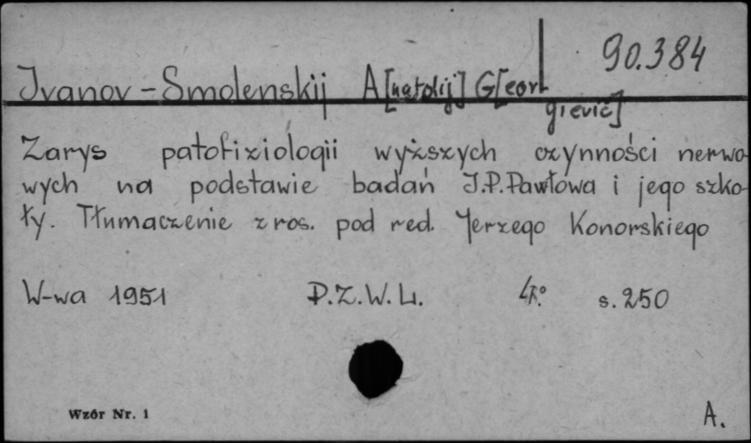 90.384
Ivanov-Smolenskij A[natolij] G[eor
gievič]
Zarys patofiziologii wyższych czynności nerwo-
wych na podstawie badań I.P. Pawłowa i jego szko-
ły. Tłumaczenie z ros. pod red. Jerzego Konorskiego
W-wa 1951 P.Z.W.L. 4° s. 250
Wzór Nr. 1
A.